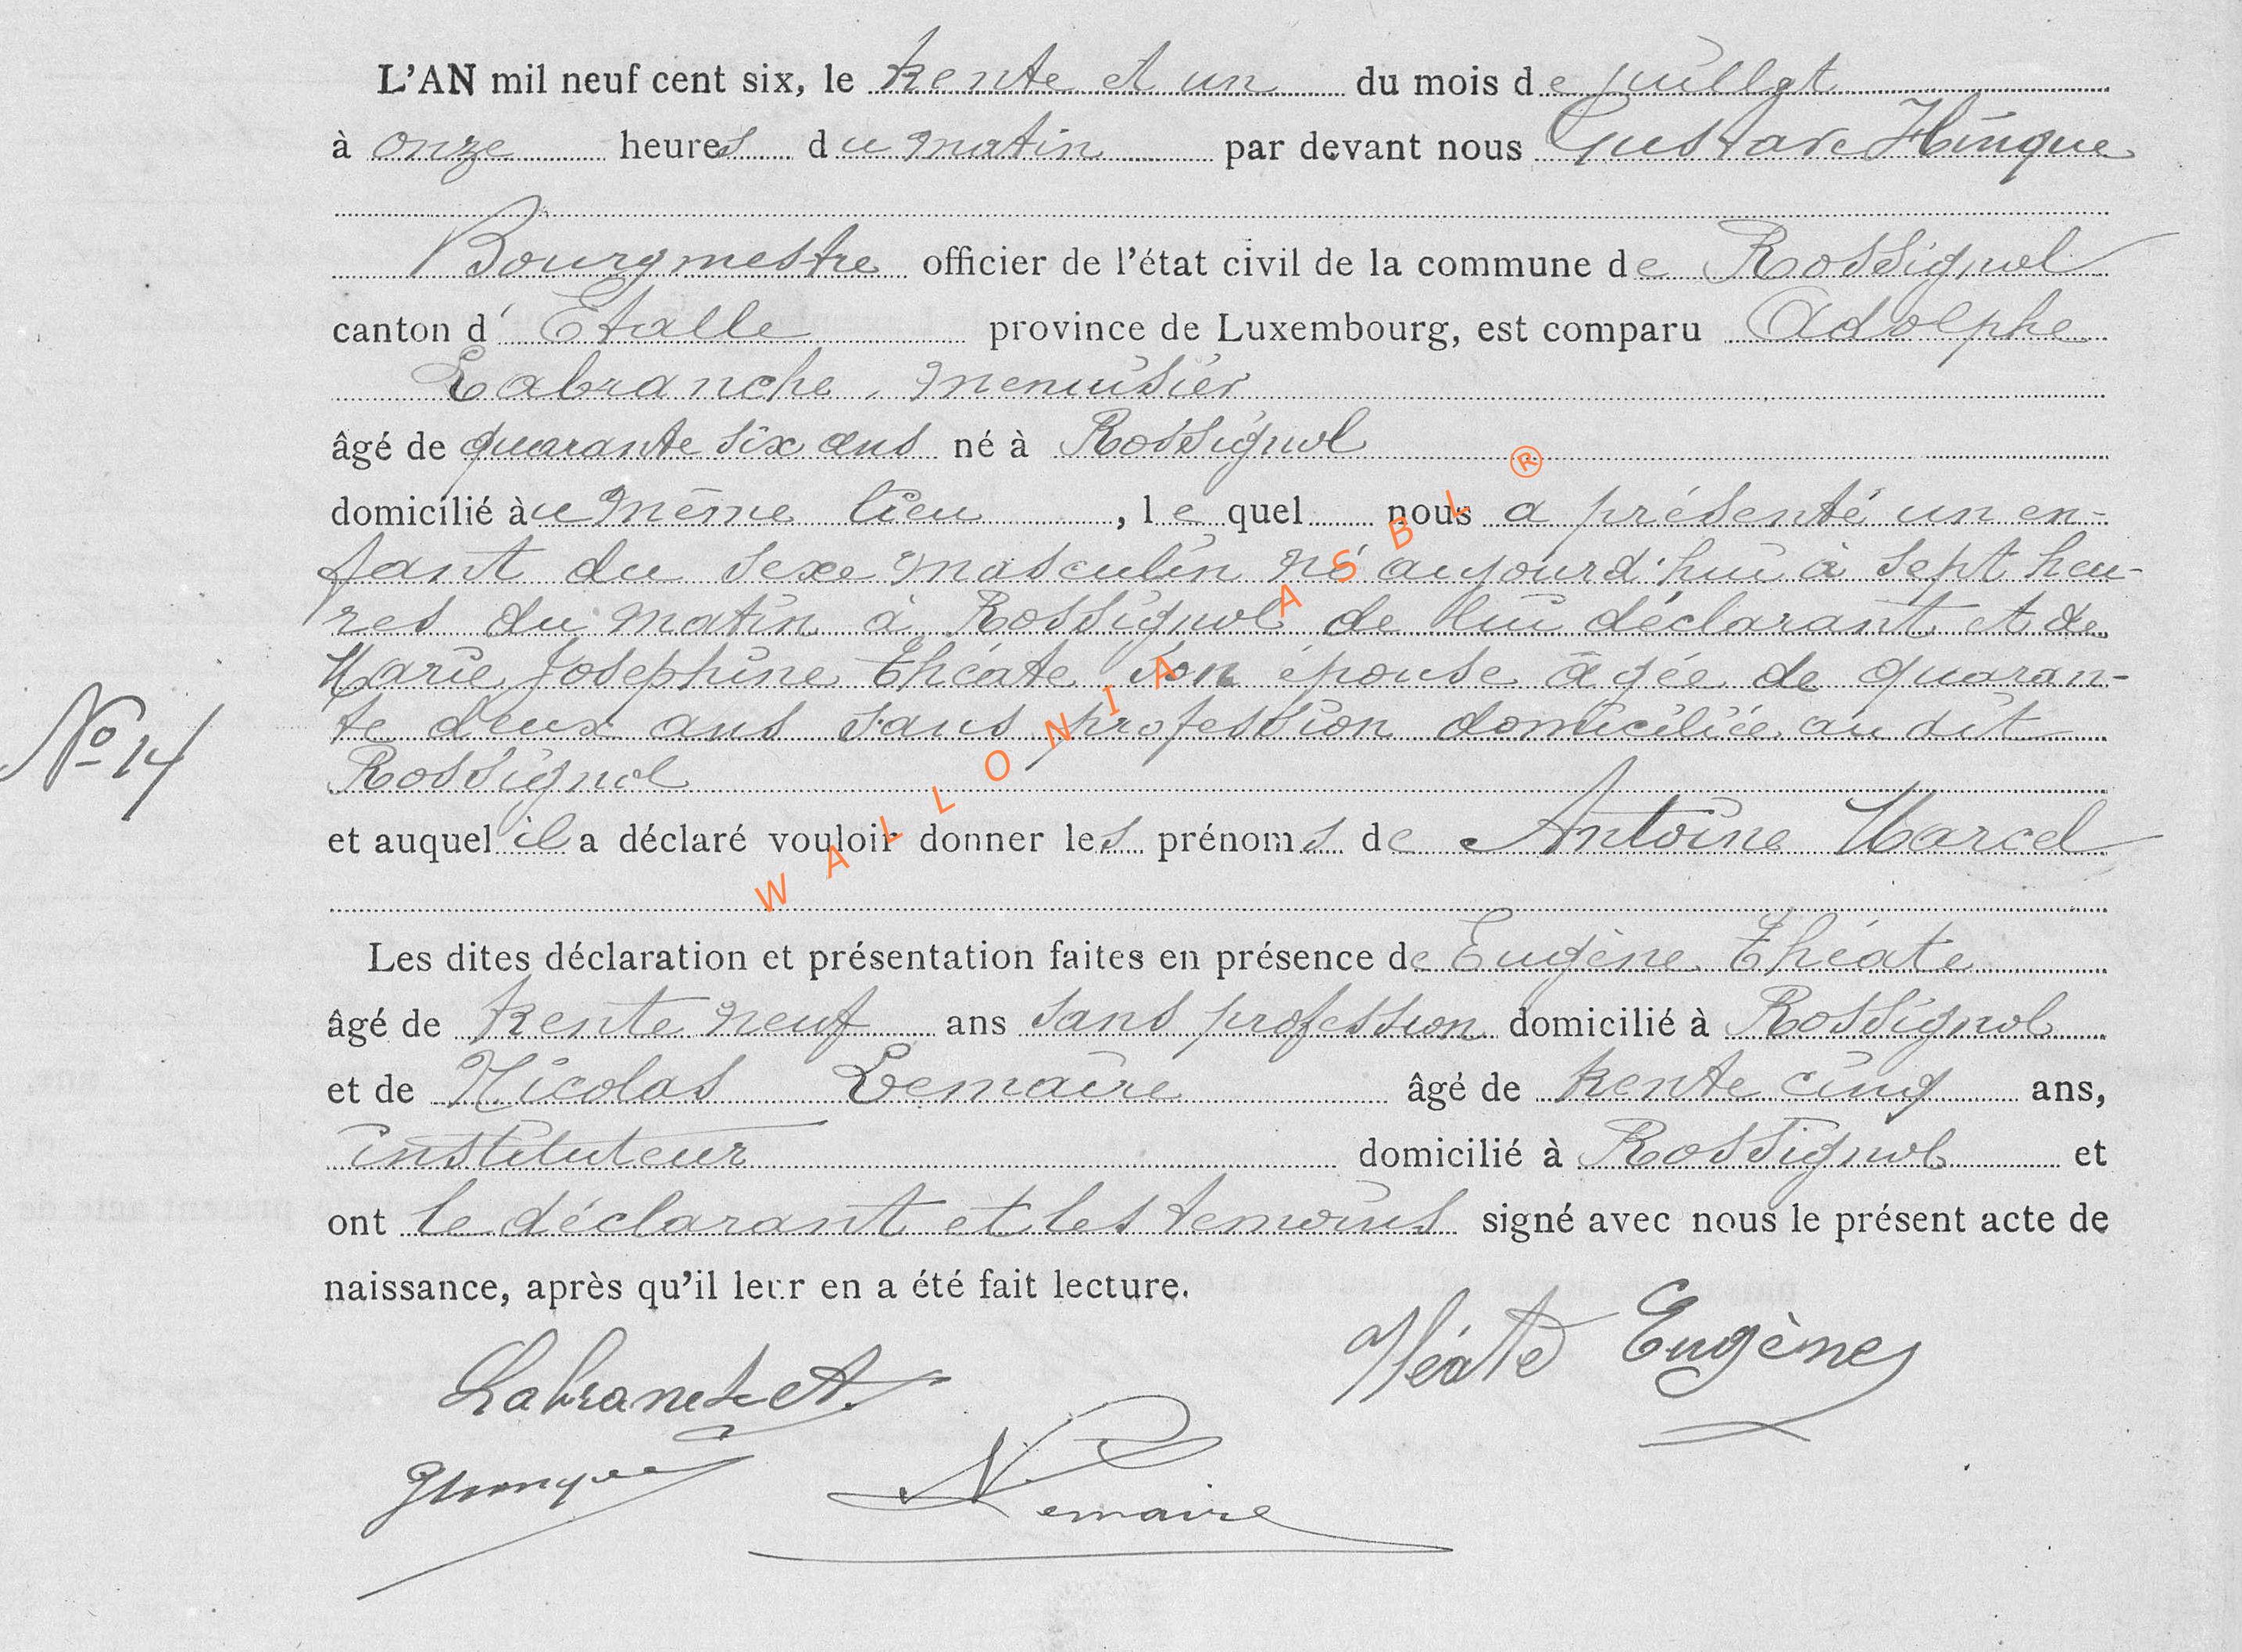 L'AN mil neuf cent six, le trente et un du mois de juillet
à onze heures du matin par devant nous Gustave Hinque
Bourgmestre officier de l'état civil de la commune de Rossignol
canton d'Etalle province de Luxembourg, est comparu Adolphe
Labranche, menuisier
âgé de quarante six ans né à Rossignol
domicilié àu même lieu, lequel nous a présenté un en-
fant du sexe masculin né aujourd'hui à sept heu-
res du matin à Rossignol de lui déclarant et de
Marie Josephine Théate son épouse âgée de quaran-
te deux ans sans profession domiciliée au dit
Rossignol
No 14
et auquel il a déclaré vouloir donner les prénoms de Antoine Marcel
Les dites déclaration et présentation faites en présence de Eugène Théate
âgé de trente neuf ans sans profession domicilié à Rossignol
et de Nicolas Lemaire âgé de trente cinq ans,
instituteur domicilié à Rossignol et
ont le déclarant et les temoins signé avec nous le présent acte de
naissance, après qu'il leur en a été fait lecture.
Labranche A.
Théate Eugène
N Lemaire
WALLONIA ASBL ®